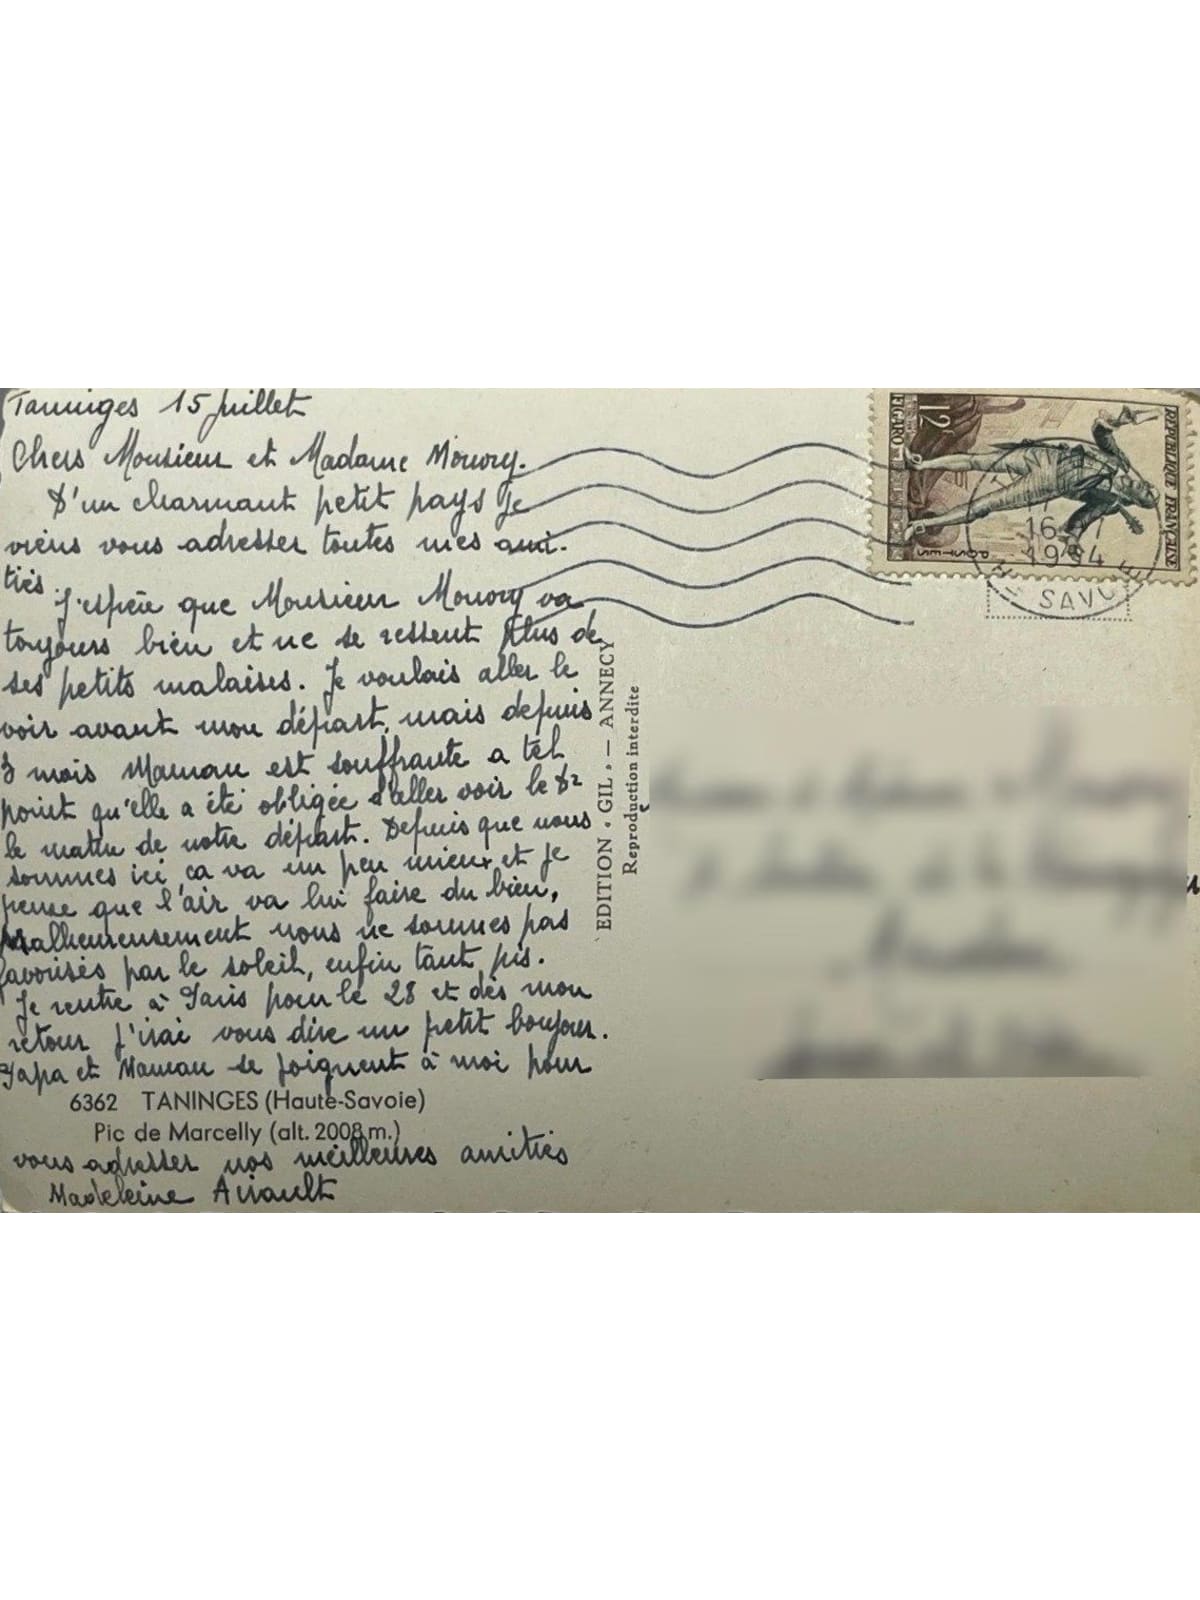 Taninges 15 Juillet
Chers Monsieur et Madame Mouory.
D'un charmant petit pays je
viens vous adresser toutes mes ami-
tiés.
J'espère que Monsieur Mouory va
toujours bien et ne se ressent plus de
ses petits malaises. Je voulais aller le
voir avant mon départ, mais depuis
3 mois Maman est souffrante a tel
point qu'elle a été obligée d'aller voir le Dr
le matin de notre départ. Depuis que nous
sommes ici ça va un peu mieux et je
pense que l'air va lui faire du bien,
Malheureusement nous ne sommes pas
favorisés par le soleil, enfin tant pis.
Je rentre à Paris pour le 28 et dès mon
retour j'irai vous dire un petit bonjour.
Papa et Maman se joignent à moi pour
6362 TANINGES (Haute-Savoie)
Pic de Marcelly (alt. 2008 m.)
vous adresser nos meilleures amitiés
Madeleine Airault
EDITION « GIL » — ANNECY
Reproduction interdite
REPUBLIQUE FRANÇAISE
POSTES
12F
FIGARO
16
1954
SAVOIE